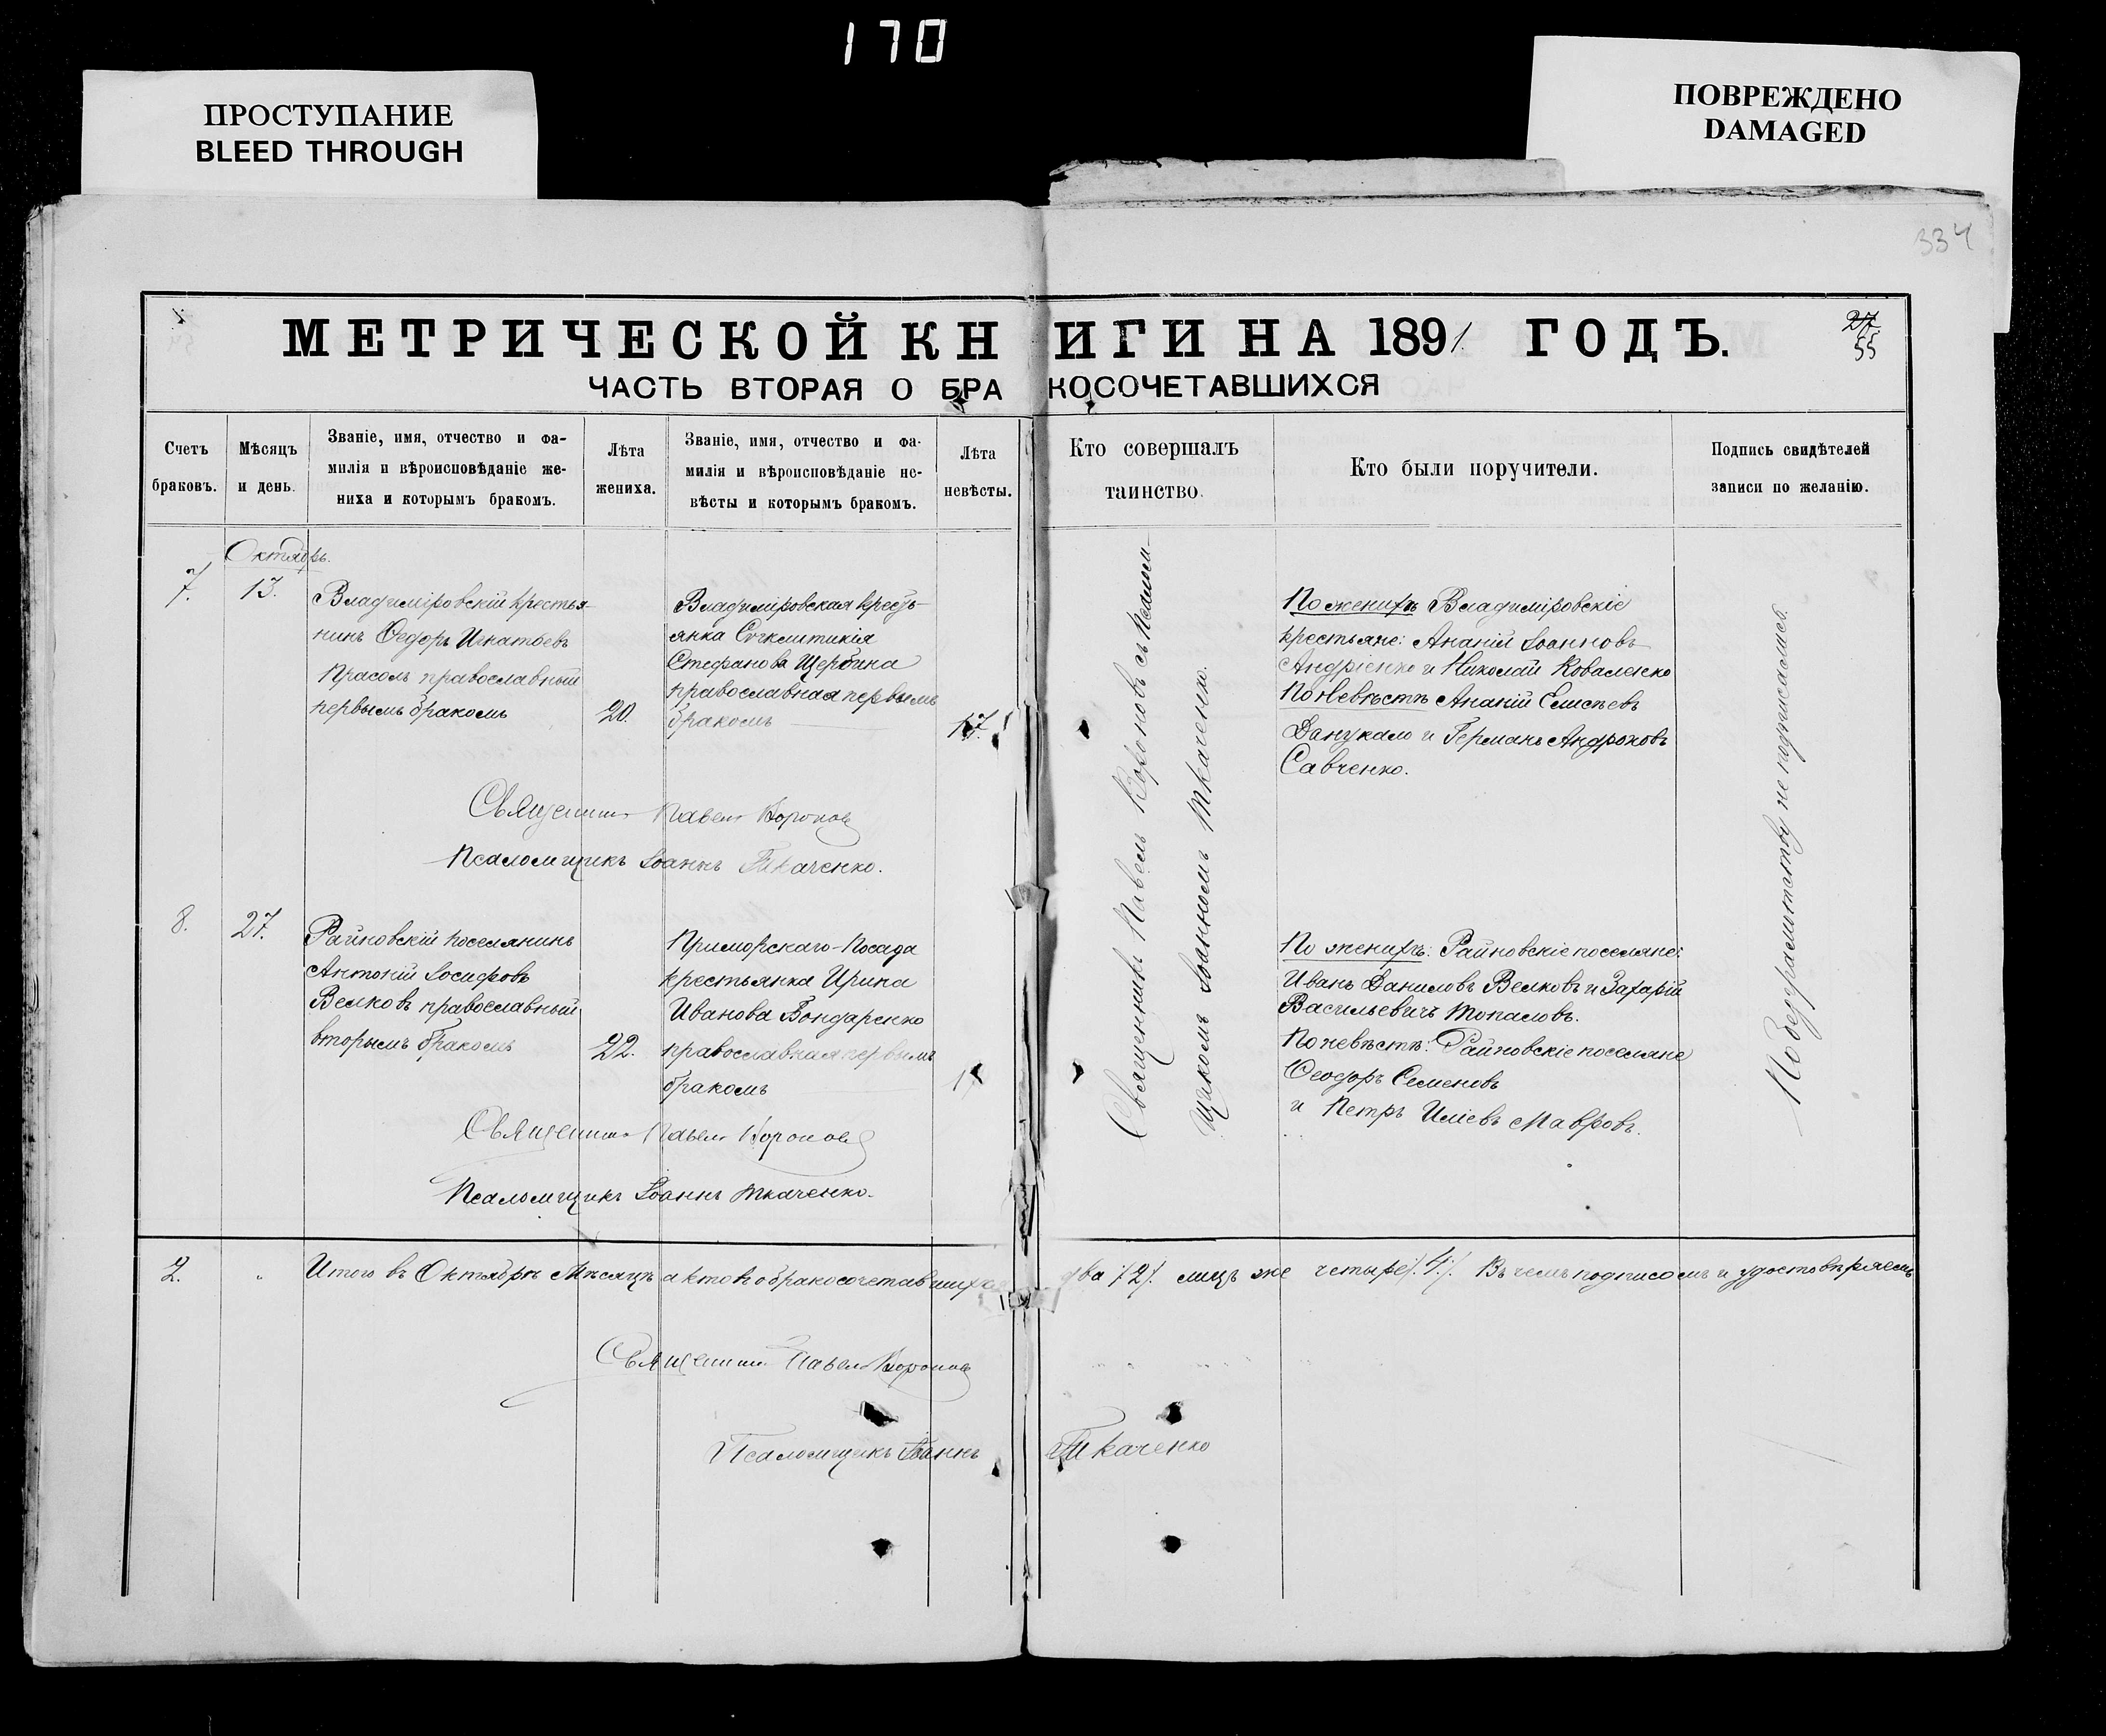 170
ПРОСТУПАНИЕ
BLEED THROUGH
ПОВРЕЖДЕНО
DAMAGED
334
МЕТРИЧЕСКОЙ КНИГИ НА 1891 ГОДЪ.
27
55
ЧАСТЬ ВТОРАЯ О БРАКОСОЧЕТАВШИХСЯ
Счетъ
браковъ.
Мѣсяцъ
и день.
Званіе, имя, отчество и фа-
милія и вѣроисповѣданіе же-
ниха и которымъ бракомъ.
Лѣта
жениха.
Званіе, имя, отчество и фа-
милія и вѣроисповѣданіе не-
вѣсты и которымъ бракомъ.
Лѣта
невѣсты.
Кто совершалъ
таинство.
Кто были поручители.
Подпись свидѣтелей
записи по желанію.
Октябрь.
7.
13.
Владиміровскій крестья-
нинъ Ѳедоръ Игнатьевъ
Прасолъ православный
первымъ бракомъ
20.
Владиміровская кресть-
янка
Стефанова Щербина
православная первымъ
бракомъ
17.
Священникъ Павелъ Вороновъ съ Псалом-
щикомъ Іоанномъ Ткаченко.
По женихѣ Владиміровскіе
крестьяне: Ананій Іоанновъ
Андріенко и Николай Коваленко
По Невѣстѣ Ананій Елисѣевъ
и Германъ Андроновъ
Савченко.
По безграмотству не подписались.
Священникъ Павелъ Вороновъ
Псаломщикъ Іоаннъ Ткаченко.
8.
27.
Райновскій поселянинъ
Антоній Іосифовъ
Велковъ православный
вторымъ бракомъ
22.
Приморскаго-Посада
крестьянка Ирина
Иванова Бондаренко
православная первымъ
бракомъ
По женихѣ: Райновскіе поселяне:
Иванъ Даниловъ Велковъ и Захарій
Васильевичъ Топаловъ.
По невѣстѣ: Райновскіе поселяне
Ѳеодоръ Семеновъ
и Петръ Иліевъ Мавровъ.
Священникъ Павелъ Вороновъ
Псаломщикъ Іоаннъ Ткаченко.
2.
Итого въ Октябрѣ Мѣсяцѣ актовъ о бракосочетавшихся два /2/. лицъ же четыре /.4./. Въ чемъ подписомъ и удостовѣряемъ
Священникъ Павелъ Вороновъ
Псаломщикъ Іоаннъ Ткаченко